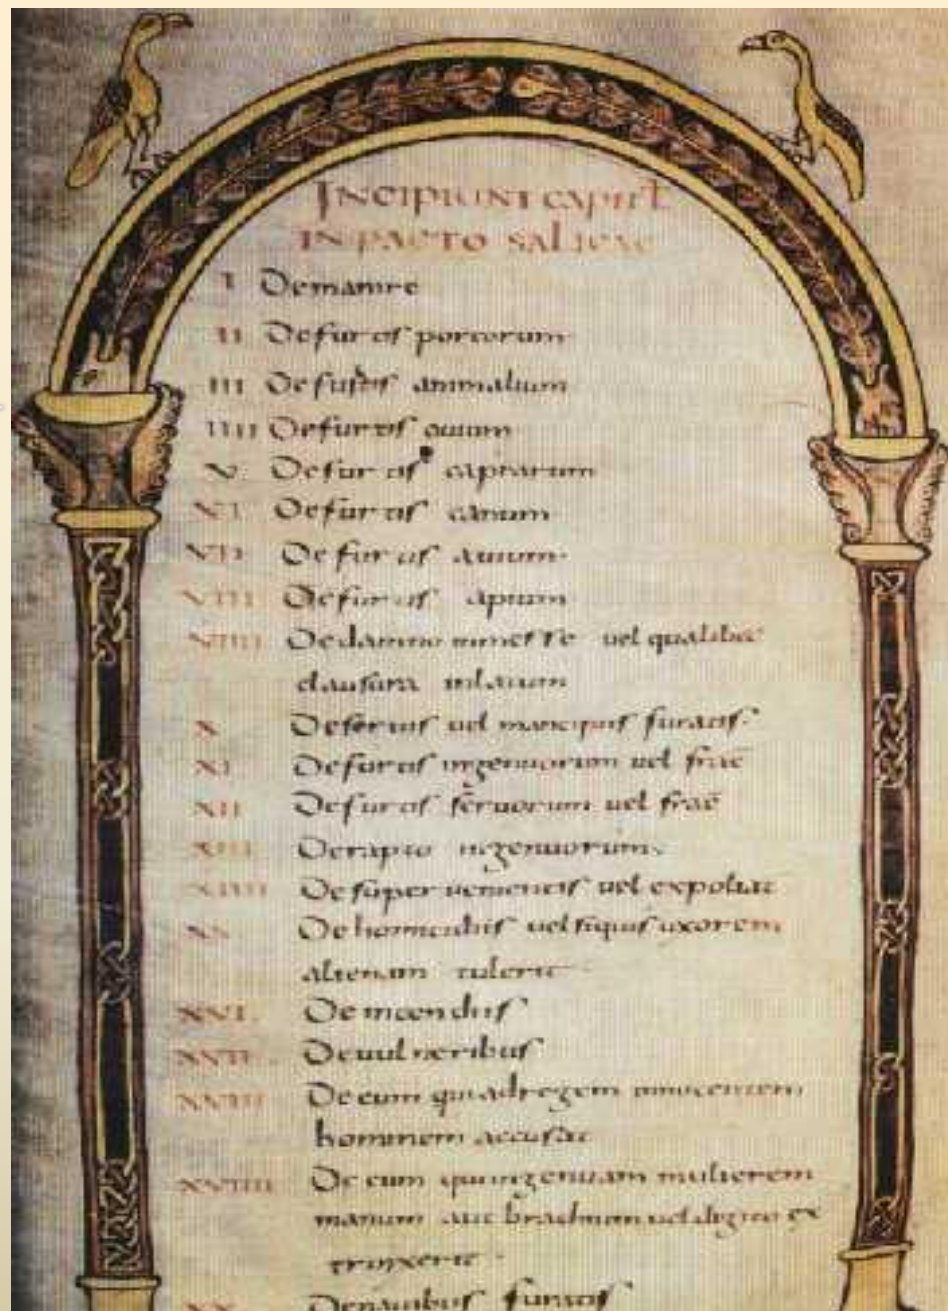 INCIPIUNT CAPITL
IN PACTO SALICAE
I Demanire
II Defurtis porcorum
III Defurtis animalium
IIII Defurtis ouium
V. Defurtis caprarum
VI Defurtis canum
VII Defurtis auium
VIII Defurtis apium
VIIII Dedamno inmesse vel qualibet
clausura inlatum
X Deseruis uel mancipiis furatis.
XI Defurtis ingenuorum uel frac
XII Defurtis seruorum uel frac
XIII Derapto ingenuorum.
XIIII De superuenientis uel expoliat
XV Dehomicidiis uel siquis uxorem
alienam tulerit
XVI. De incendiis
XVII Deuulneribus
XVIII De eum qui adregem innocentem
hominem accusat
XVIIII De eum quiingenuam mulierem
manum aut brachium uel digito ex
trinxerit.
XX Denauibus furatis